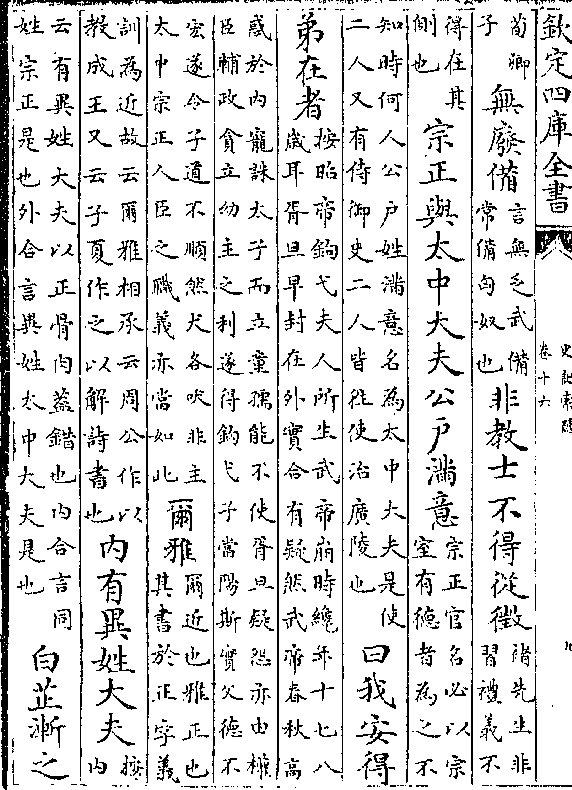 欽定四庫全書
史記索隱
卷十六
九
荀卿
子
無廢備
言無乏武備
常備匈奴也
非教士不得從徵
褚先生非
習禮義不
得在其
側也
宗正與太中大夫公户滿意
宗正官名必以宗
室有德者為之不
知時何人公户姓滿意名為太中大夫是使
二人又有侍御史二人皆往使治廣陵也
曰我安得
弟在者
按昭帝鈎弋夫人所生武帝崩時纔年十七八
歲耳胥旦早封在外實合有疑然武帝春秋高
惑於内寵誅太子而立童孺能不使胥旦疑怨亦由權
臣輔政貪立幼主之利遂得鈎弋子當陽斯實父德不
宏遂令子道不順然犬各吠非主
太中宗正人臣之職義亦當如此
爾雅
爾近也雅正也
其書於正字義
訓為近故云爾雅相承云周公作以
教成王又云子夏作之以解詩書也
内有異姓大夫
按
内
云有異姓大夫以正骨肉蓋錯也内合言同
姓宗正是也外合言異姓太中大夫是也
白芷漸之